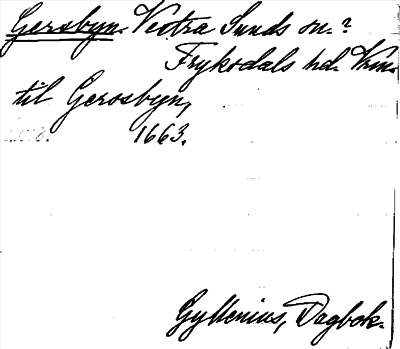 Gersbyn. Vestra Sunds sn.?
Fryksdals hd. Vrml.
til Gerosbyn,
1663.
Gyllenius, Dagbok.